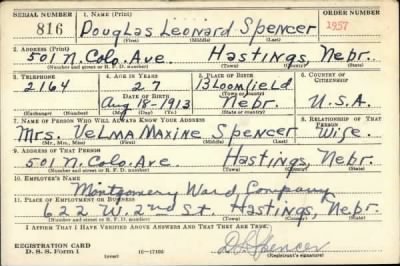 SERIAL NUMBER 1. NAME (Print) ORDER NUMBER
816 Douglas Leonard Spencer 1957
(First) (Middle) (Last)
2. ADDRESS (Print)
501 N. Colo. Ave. Hastings, Nebr.
(Number and street or R. F. D. number) (Town) (County) (State)
3. TELEPHONE 4. AGE IN YEARS 5. PLACE OF BIRTH 6. COUNTRY OF CITIZENSHIP
2164 27 Bloomfield
DATE OF BIRTH (Town or county)
Aug 18-1913 Nebr. U.S.A.
(Exchange) (Number) (Mo.) (Day) (Yr.) (State or country)
7. NAME OF PERSON WHO WILL ALWAYS KNOW YOUR ADDRESS 8. RELATIONSHIP OF THAT PERSON
Mrs. Velma Maxine Spencer Wife.
(Mr., Mrs., Miss) (First) (Middle) (Last)
9. ADDRESS OF THAT PERSON
501 N. Colo. Ave. Hastings, Nebr.
(Number and street or R. F. D. number) (Town) (County) (State)
10. EMPLOYER'S NAME
Montgomery Ward Company
11. PLACE OF EMPLOYMENT OR BUSINESS
622 W. 2nd St. Hastings, Nebr.
(Number and street or R. F. D. number) (Town) (County) (State)
I AFFIRM THAT I HAVE VERIFIED ABOVE ANSWERS AND THAT THEY ARE TRUE.
REGISTRATION CARD
D. S. S. Form 1 (over) 16-17105 D L Spencer
(Registrant's signature)